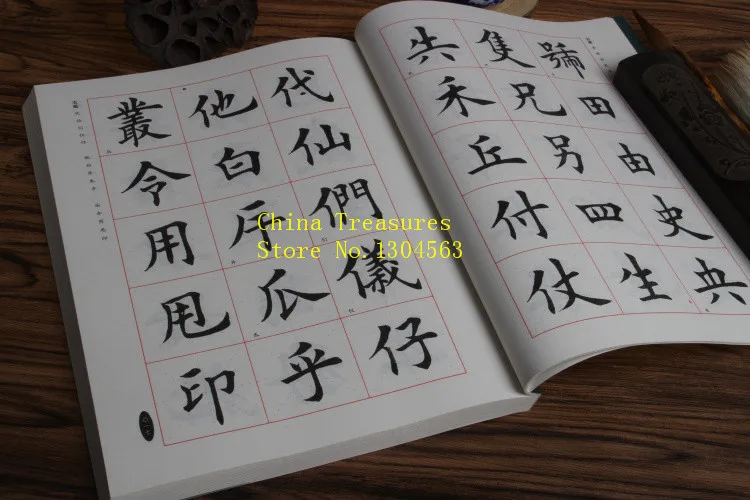 叢 他 代
令 白 仙
用 戶 們
甩 瓜 儀
印 乎 仔
隻 號
禾 兄 田
丘 另 由
付 四 史
仗 生 央
China Treasures
Store No.1304563